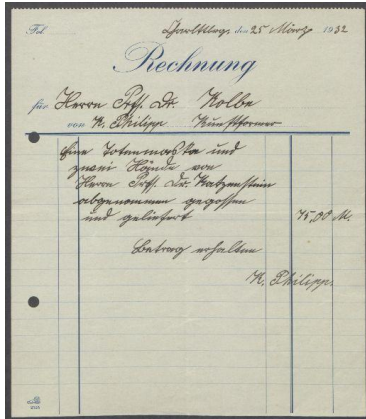 Tel.
Charlttbg. den 25 März 1932
Rechnung
für Herrn Prf. Dr. Kolbe
von K. Philipp Kunstformer
Eine Totenmaske und
zwei Hände von
Herrn Prf. Dr. Katzenstein
abgenommen gegossen
und geliefert 75,00 M.
Betrag erhalten
K. Philipp.